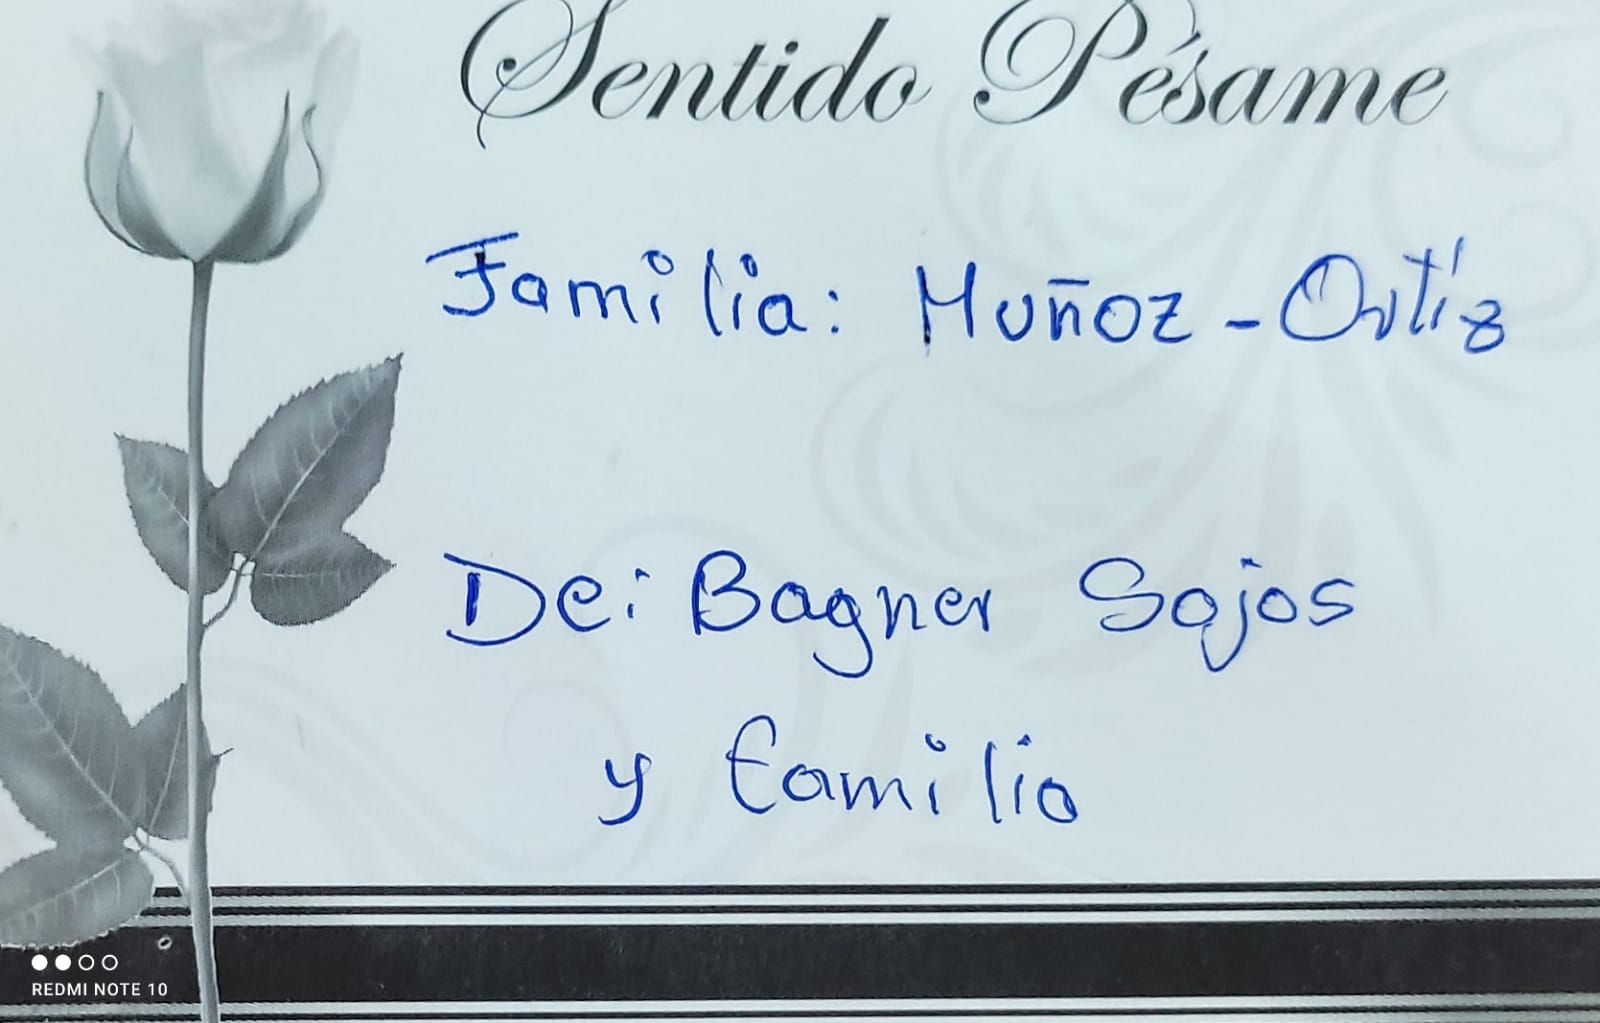 Sentido Pésame
Familia: Muñoz - Ortíz
De: Bagner Sojos
y familia
REDMI NOTE 10